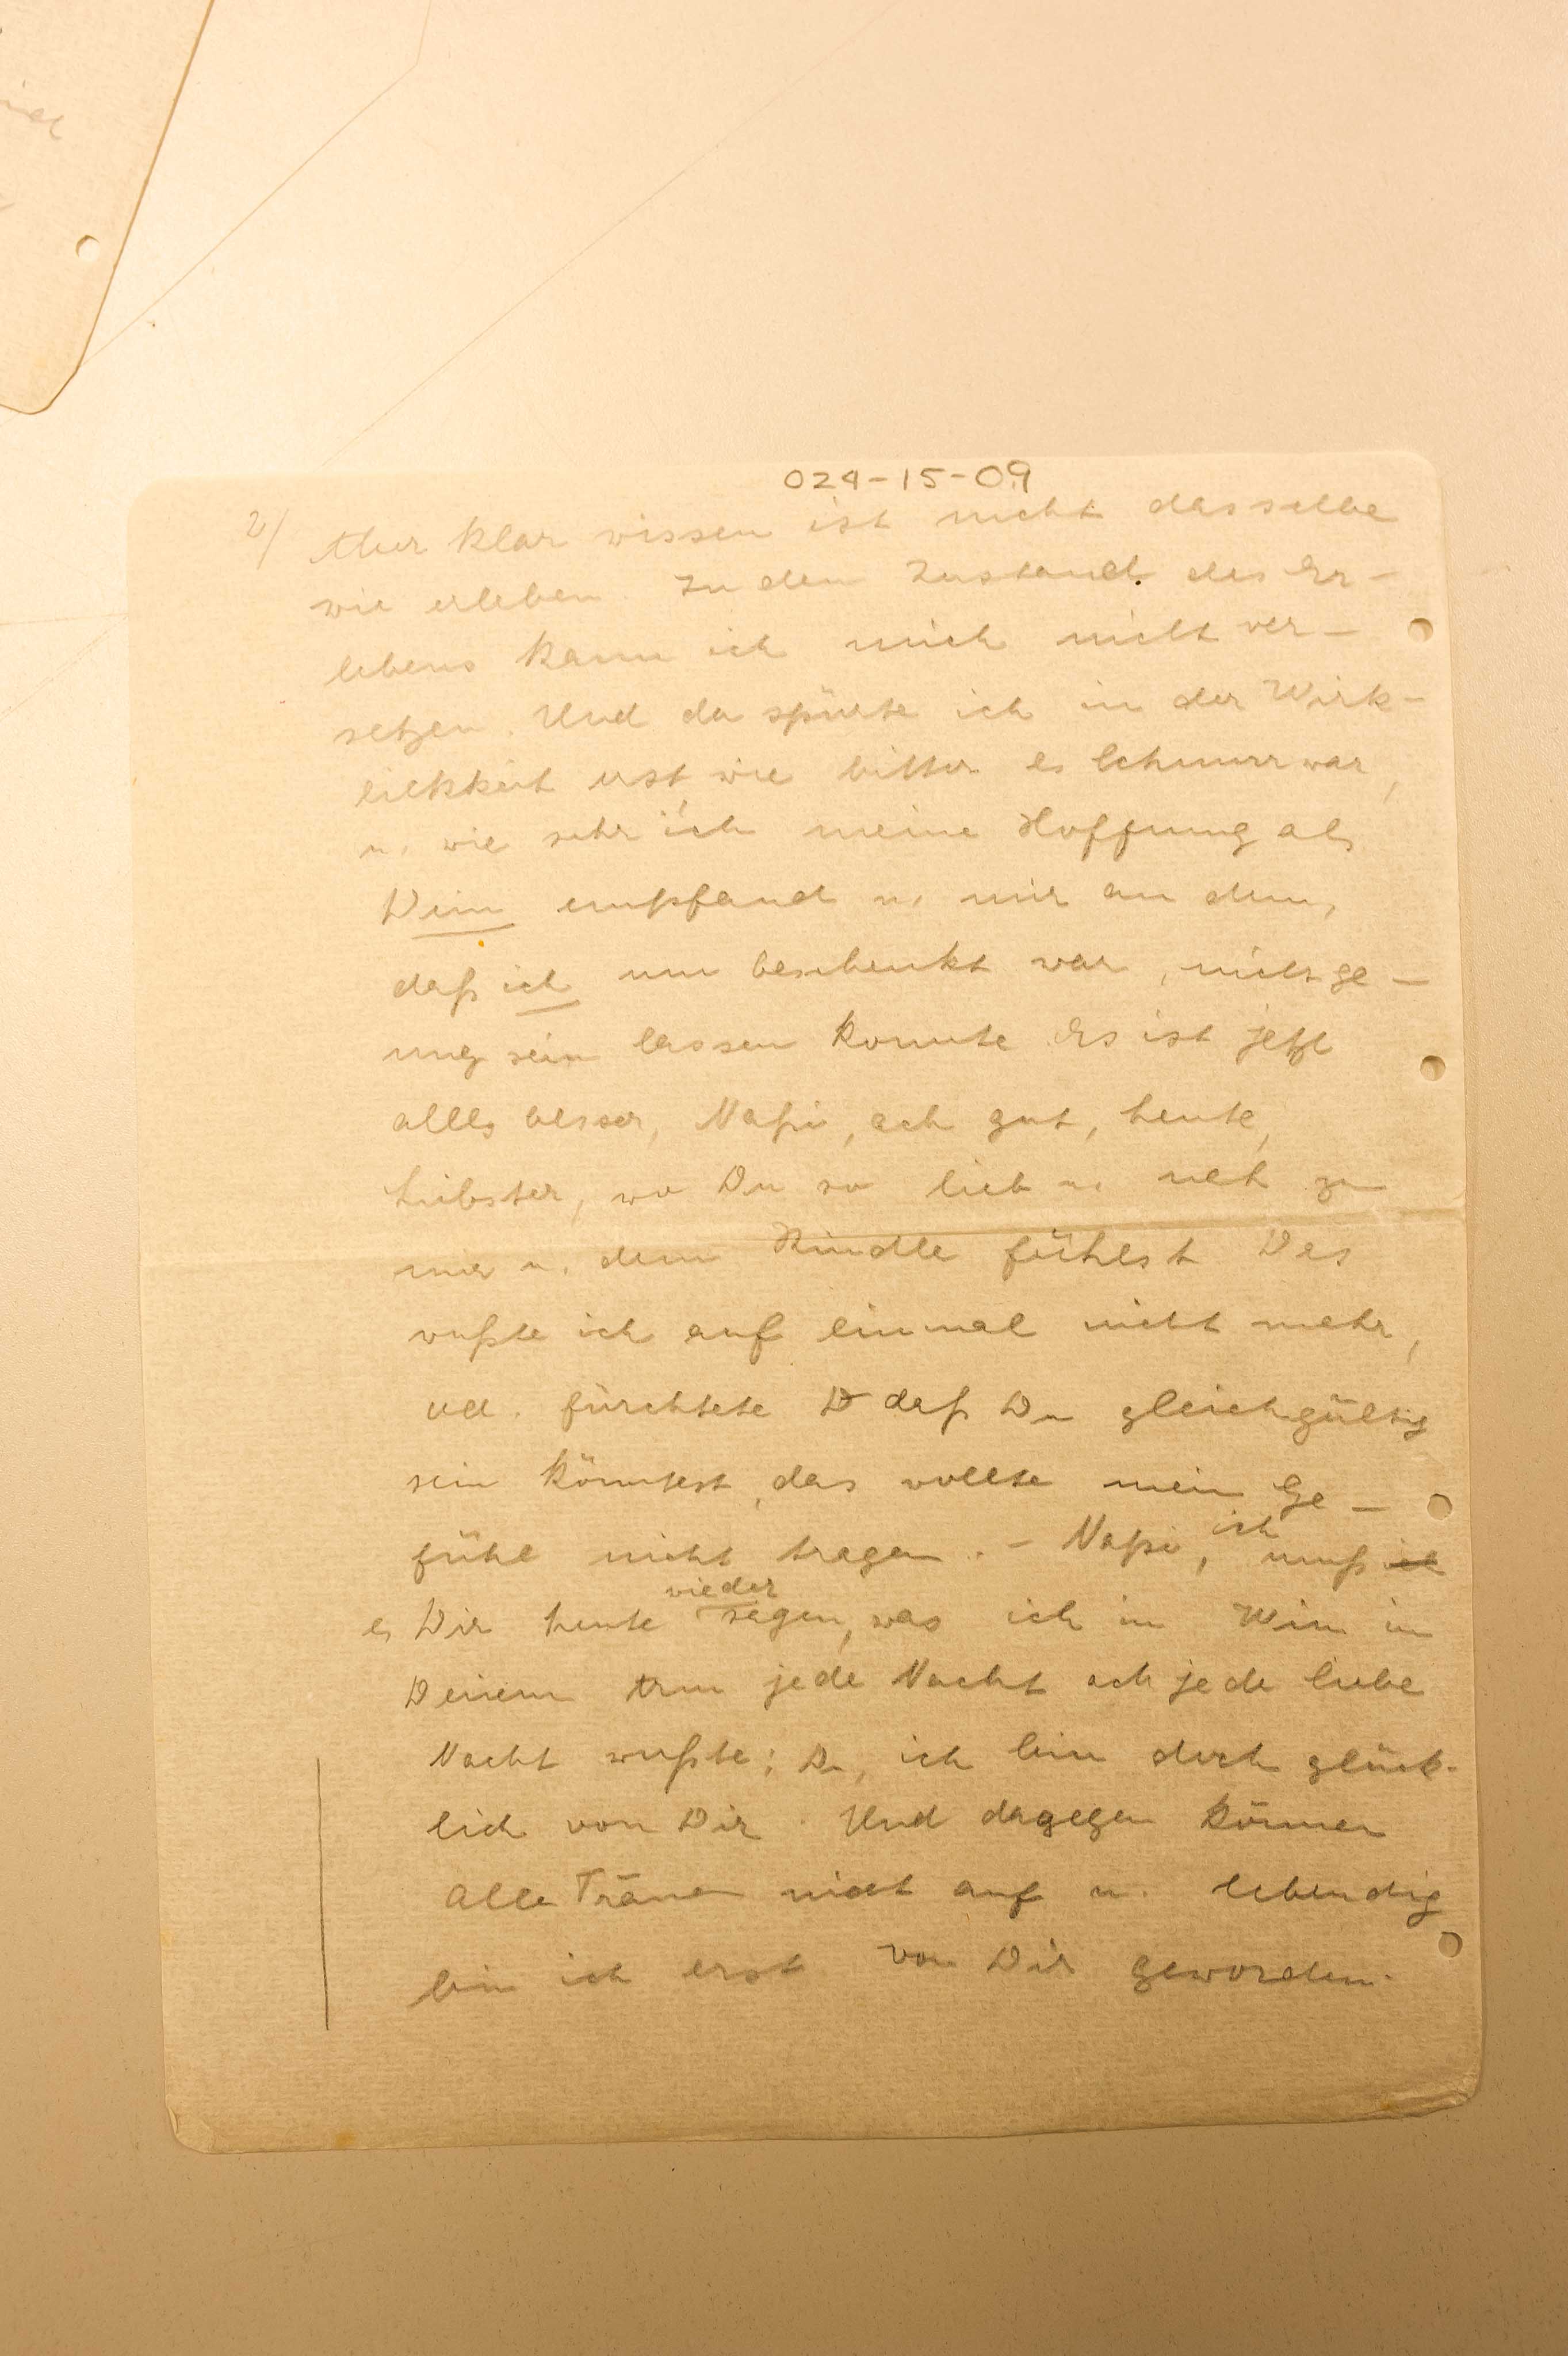 024-15-09
2/ Aber klar wissen ist nicht dasselbe
wie erleben. In den Zustand des Er-
lebens kann ich mich nicht ver-
setzen. Und da spürte ich in der Wirk-
lichkeit erst, wie bitter es war,
u. wie sehr ich meine Hoffnung als
Dein empfand u. mir an dem,
daß ich nun beschenkt war, nicht ge-
nug sein lassen konnte Es ist jetzt
alles besser, Napi, ach gut, heute,
Liebster, wo Du so lieb u. nett zu
mir u. dem Kindle fühlst Das
wußte ich auf einmal nicht mehr,
ud. fürchtete D daß Du gleichgültig
sein könntest, das wollte mein Ge-
fühl nicht tragen. - Napi, ich muß ich
es Dir heute wieder sagen, was ich in Wien in
Deinem Arm jede Nacht ach jede liebe
Nacht wußte: Du, ich bin doch glück-
lich von Dir. Und dagegen können
alle Tränen nicht auf u. lebendig
bin ich erst von Dir geworden.